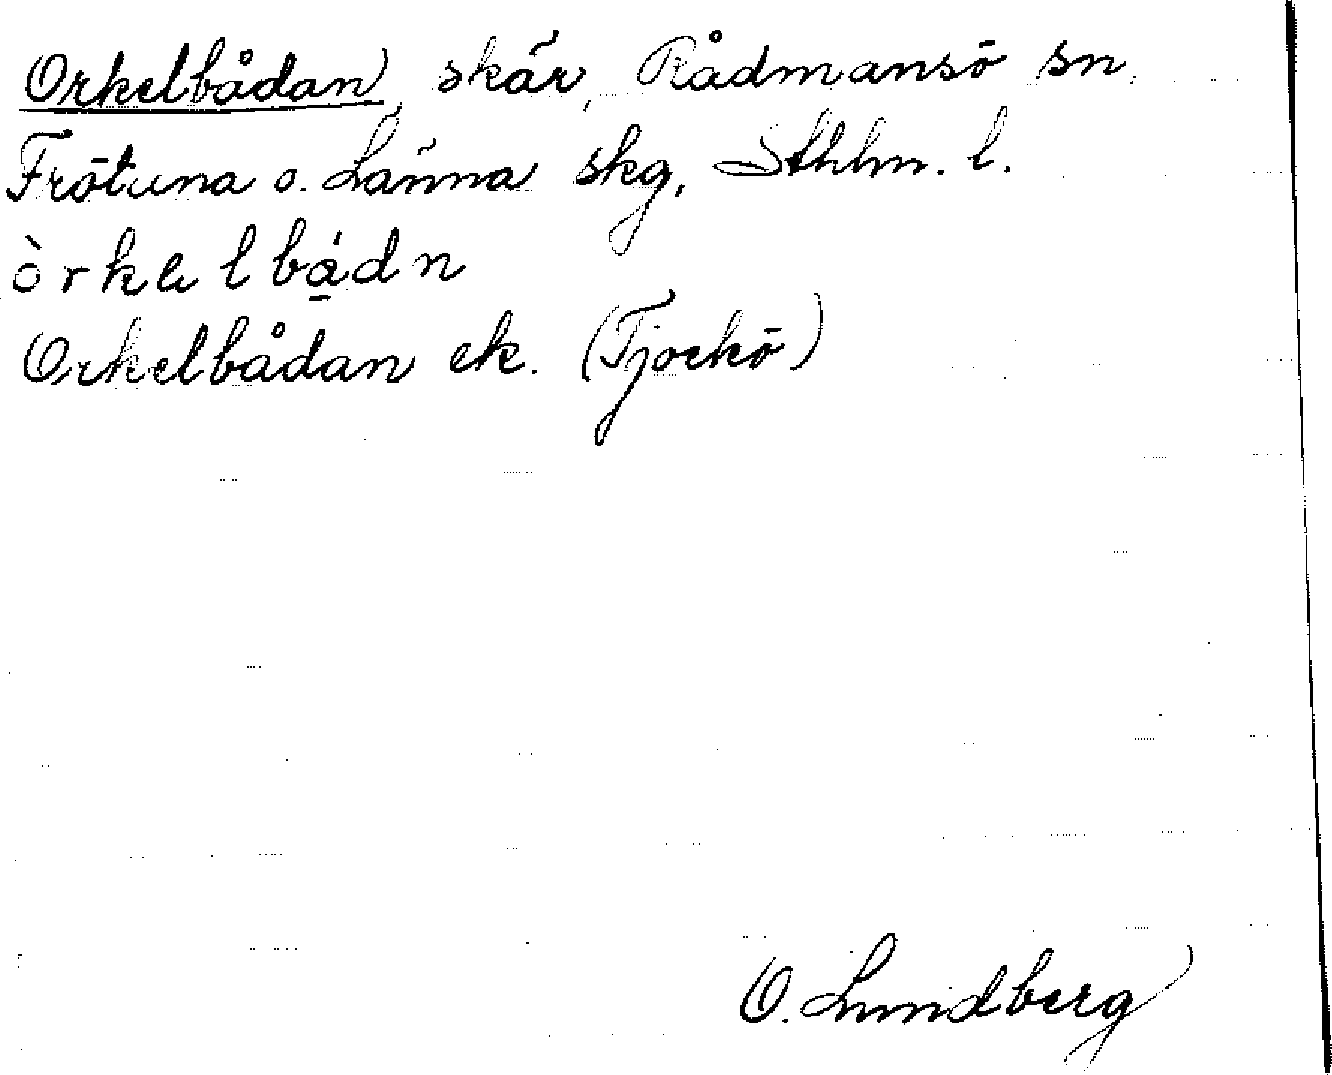 Orkelbådan, skär, Rådmansö sn,
Frötuna o. Länna skg, Sthlm. l.
òrkelbá̠dn
Orkelbådan ek. (Tjockö)
O. Lundberg